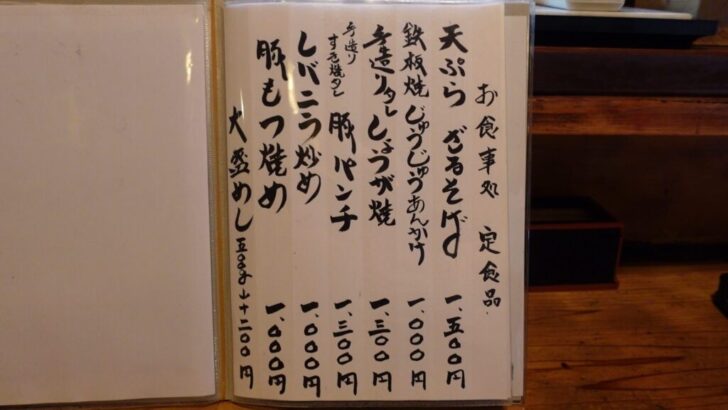 お食事処 定食品
天ぷら ざるそば 一、五〇〇円
鉄板焼 じゅうじゅうあんかけ 一、〇〇〇円
手造りタレ しょうが焼 一、三〇〇円
手造りすき焼タレ 豚パンチ 一、三〇〇円
レバニラ炒め 一、〇〇〇円
豚もつ焼め 一、〇〇〇円
大盛めし 二〇〇円